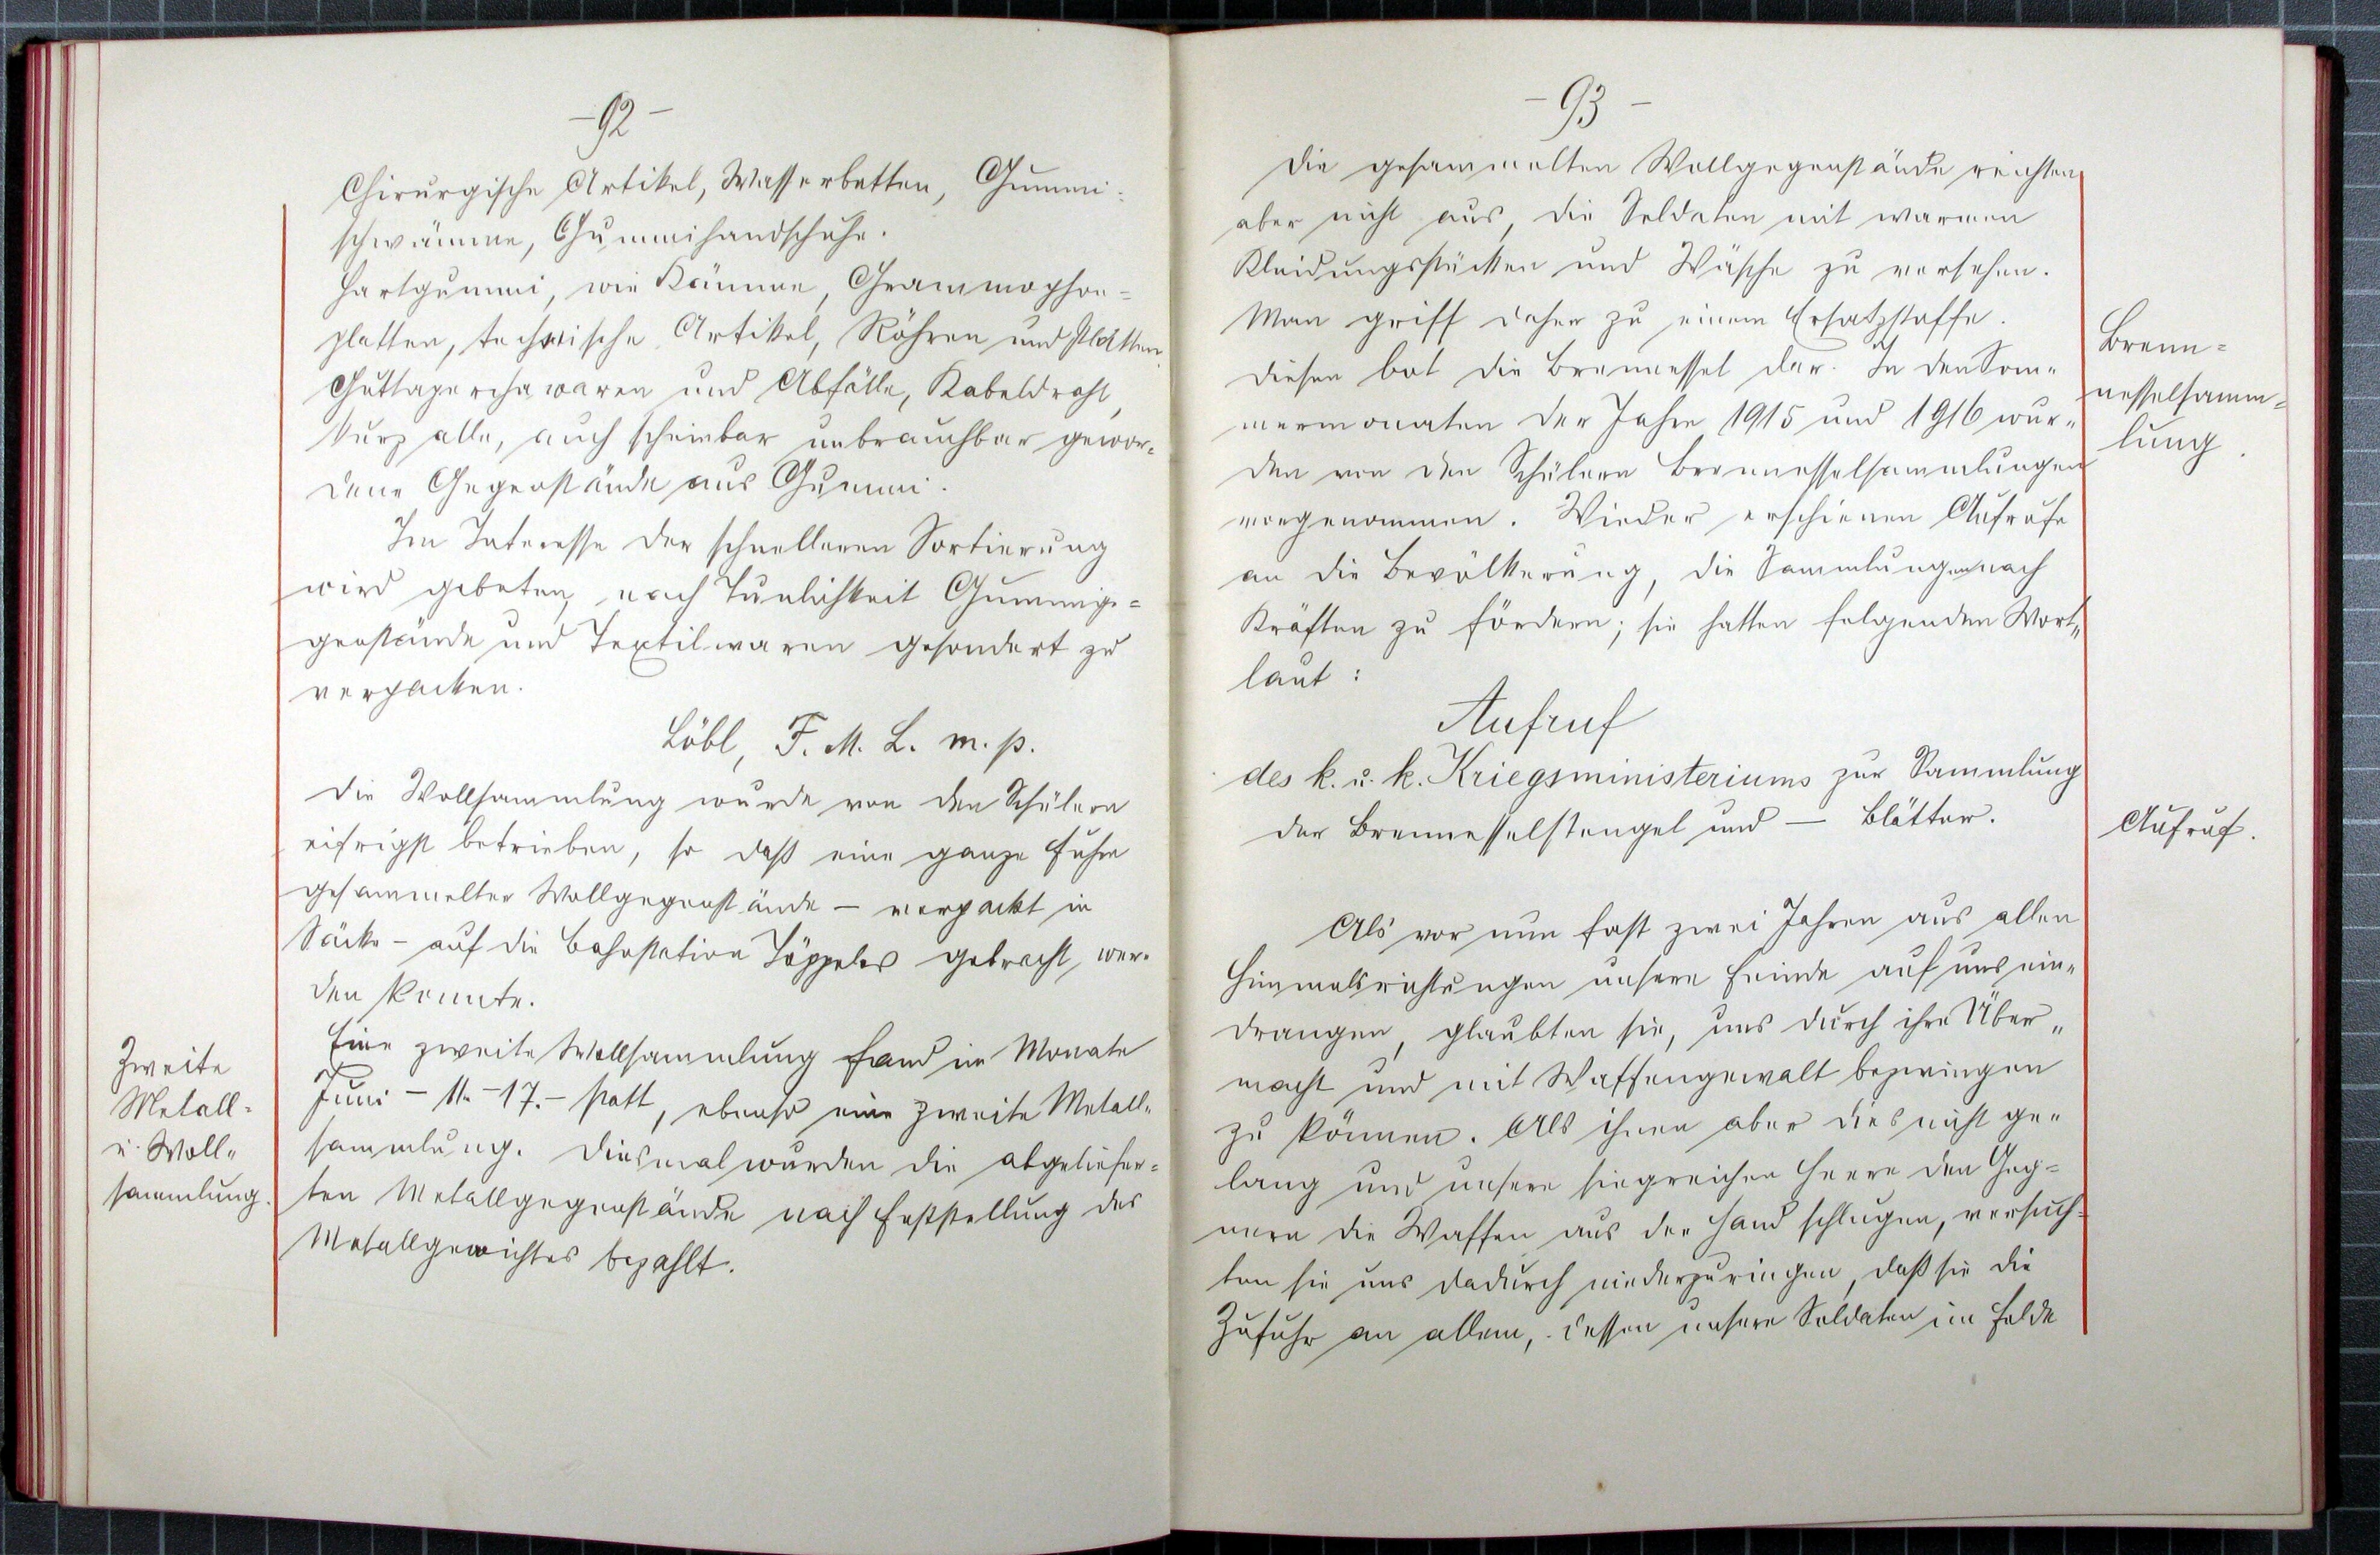 -92-
Chirurgische Artikel, Wasserbetten, Gummi-
schwämme, Gummihandschuhe.
Hartgummi, wie Kämme, Grammophon=
platten, technische Artikel, Röhren und Platten
Guttaperchawaren und Abfälle, Kabeldraht,
kurz alle, auch scheinbar unbrauchbar gewor-
dene Gegenstände aus Gummi.
Im Interesse der schnelleren Sortierung
wird gebeten, nach Tunlichkeit Gummige=
genstände und Textilwaren gesondert zu
verpacken.
Löbl, F. M. L. m. p.
Die Wollsammlung wurde von den Schülern
eifrigst betrieben, so daß eine ganze Fuhre
gesammelter Wollgegenstände – verpackt in
Säcke – auf die Bahnstation Töppeles gebracht, wer-
den konnte.
Zweite
Metall-
u. Woll-
sammlung.
Eine zweite Wollsammlung fand im Monate
Juni – 11.-17. – statt, ebenso eine zweite Metall-
sammlung. Diesmal wurden die abgeliefer=
ten Metallgegenstände nach Feststellung des
Metallgewichtes bezahlt.
-93-
Die gesammelten Wollgegenstände reichten
aber nicht aus, die Soldaten mit warmen
Kleidungsstücken und Wäsche zu versehen.
Man griff daher zu einem Ersatzstoffe.
Diesen bot die Brennessel dar. In den Som-
mermonaten der Jahre 1915 und 1916 wur-
den von den Schülern Brennesselsammlungen
vorgenommen. Wieder erschienen Aufrufe
an die Bevölkerung, die Sammlungen nach
Kräften zu fördern; sie hatten folgenden Wort-
laut:
Brenn=
nesselsamm=
lung.
Aufruf
des k. u. k. Kriegsministeriums zur Sammlung
der Brennesselstengel und – Blätter.
Aufruf.
Als vor nun fast zwei Jahren aus allen
Himmelsrichtungen unsere Feinde auf uns ein-
drangen, glaubten sie, uns durch ihre Über-
macht und mit Waffengewalt bezwingen
zu können. Als ihnen aber dies nicht ge-
lang und unsere siegreichen Heere den Geg=
nern die Waffen aus der Hand schlugen, versuch=
ten sie uns dadurch niederzuringen, daß sie die
Zufuhr an allem, dessen unsere Soldaten im Felde